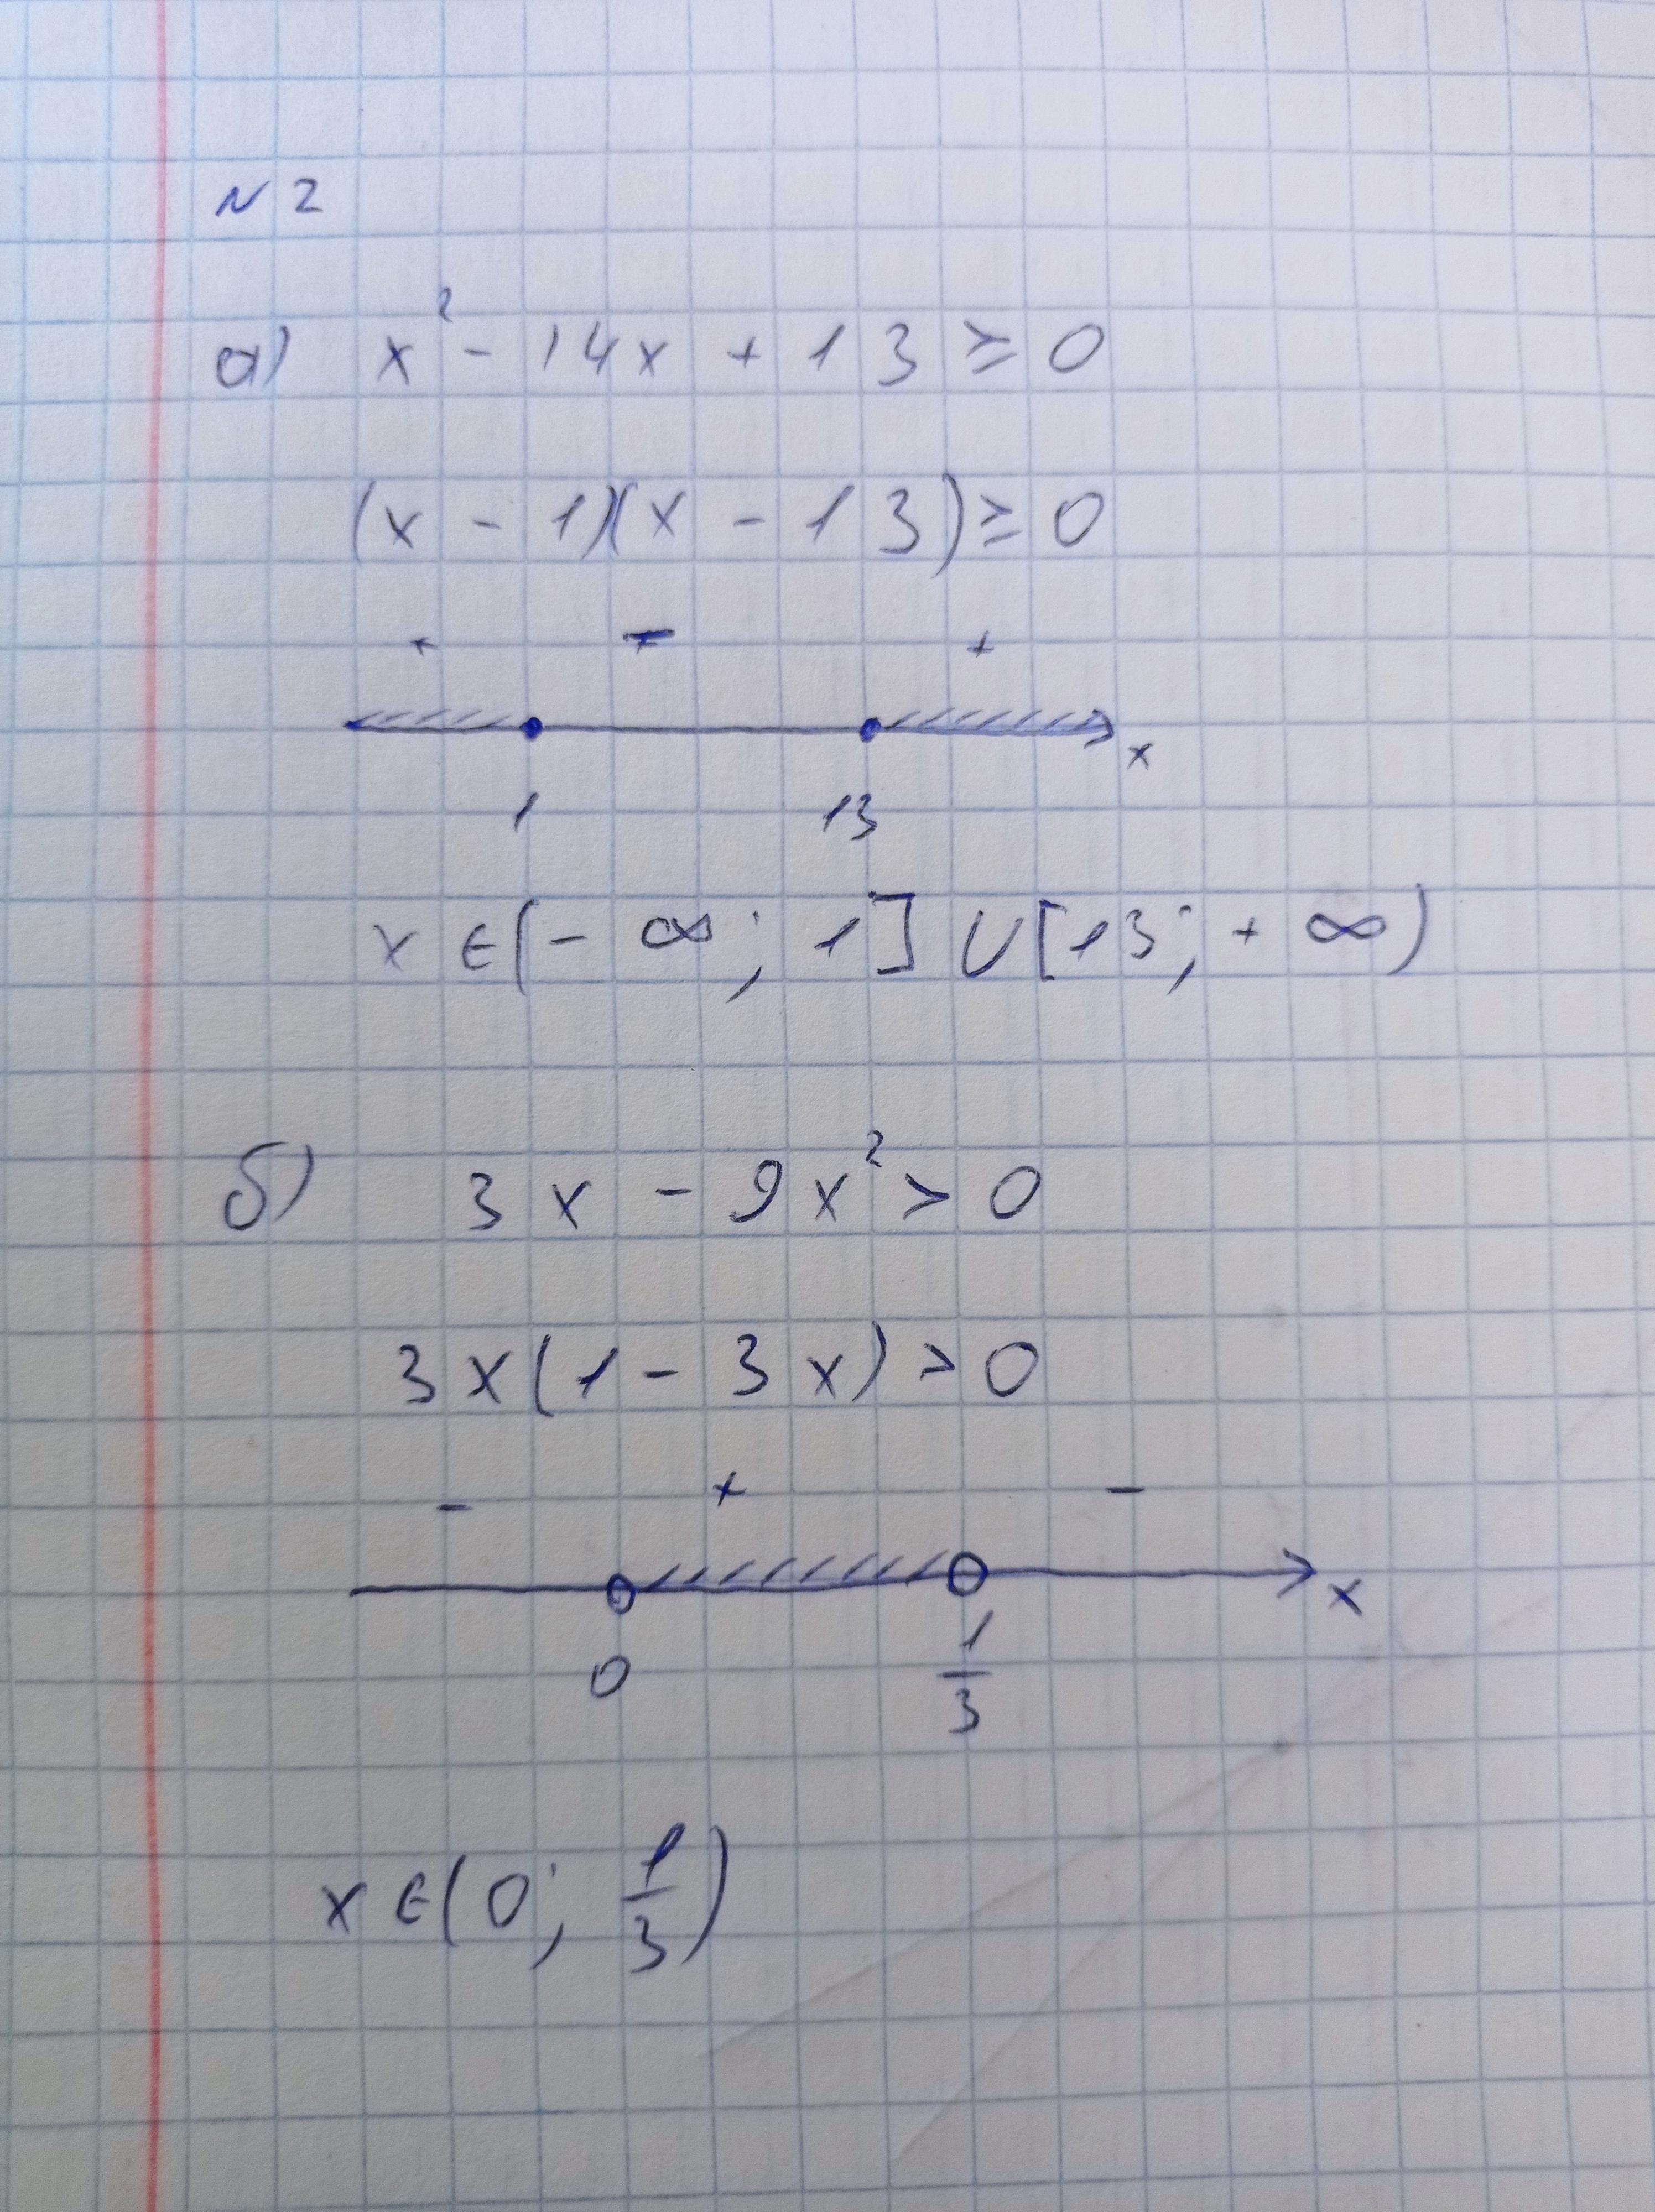 N 2
а) x² - 14x + 13 ≥ 0
(x - 1)(x - 13) ≥ 0
+ - +
x
1 13
x ∈ (-∞; 1] ∪ [13; +∞)
б) 3x - 9x² > 0
3x(1 - 3x) > 0
- + -
x
0 1/3
x ∈ (0; 1/3)